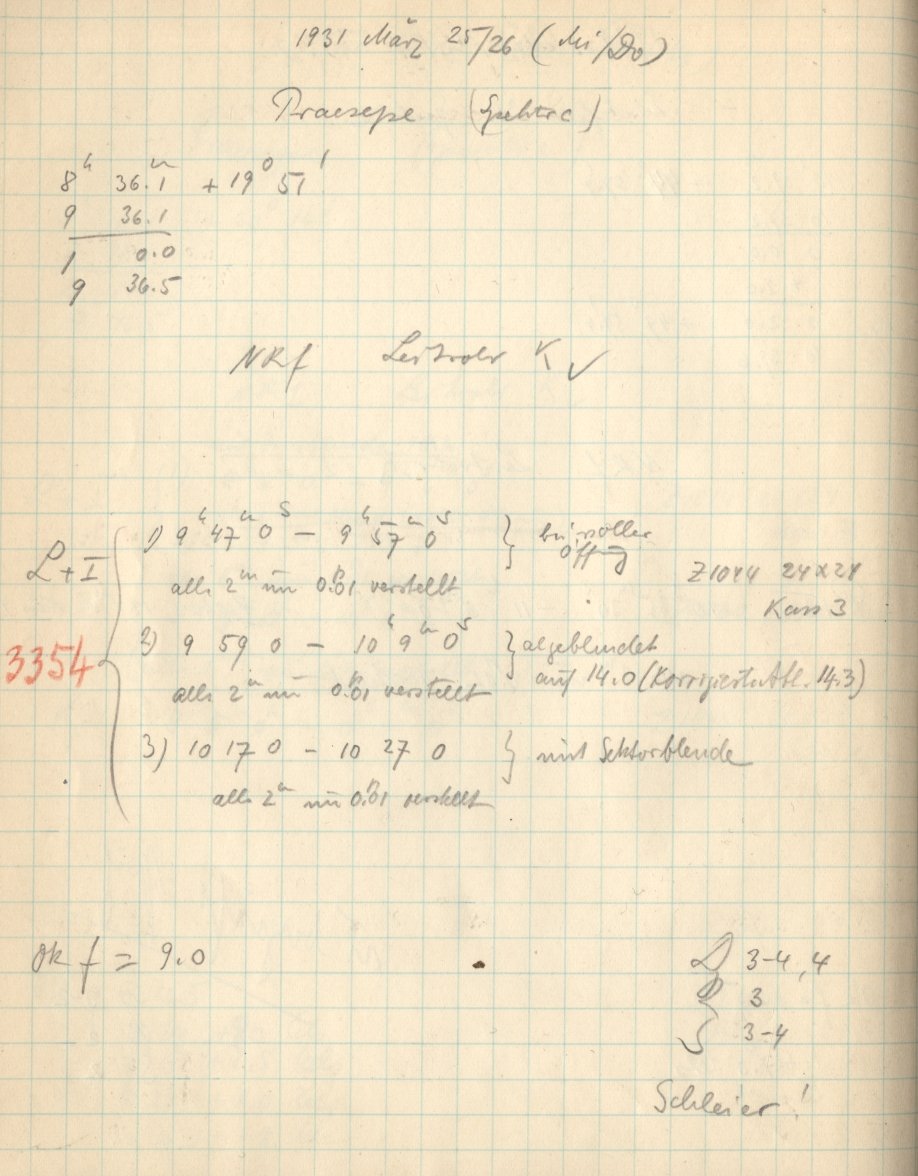 1931 März 25/26 (Mi/Do)
Praesepe (Spektra)
8h 36.m1 +19° 51'
9 36.1
1 0.0
9 36.5
NRf Leitrohr K ✓
L+I
3354
1) 9h 47m 0s — 9h 57m 0s } bei voller Öffng
alle 2m um 0.R01 verstellt
Z1044 24x24
Kass 3
2) 9 59 0 — 10h 9m 0s } abgeblendet
auf 14.0 (Korrigierte Abl. 14.3)
alle 2m um 0.R01 verstellt
3) 10 17 0 — 10 27 0 } mit Sektorblende
alle 2m um 0.R01 verstellt
Ok f = 9.0
L 3-4, 4
3
S 3-4
Schleier!